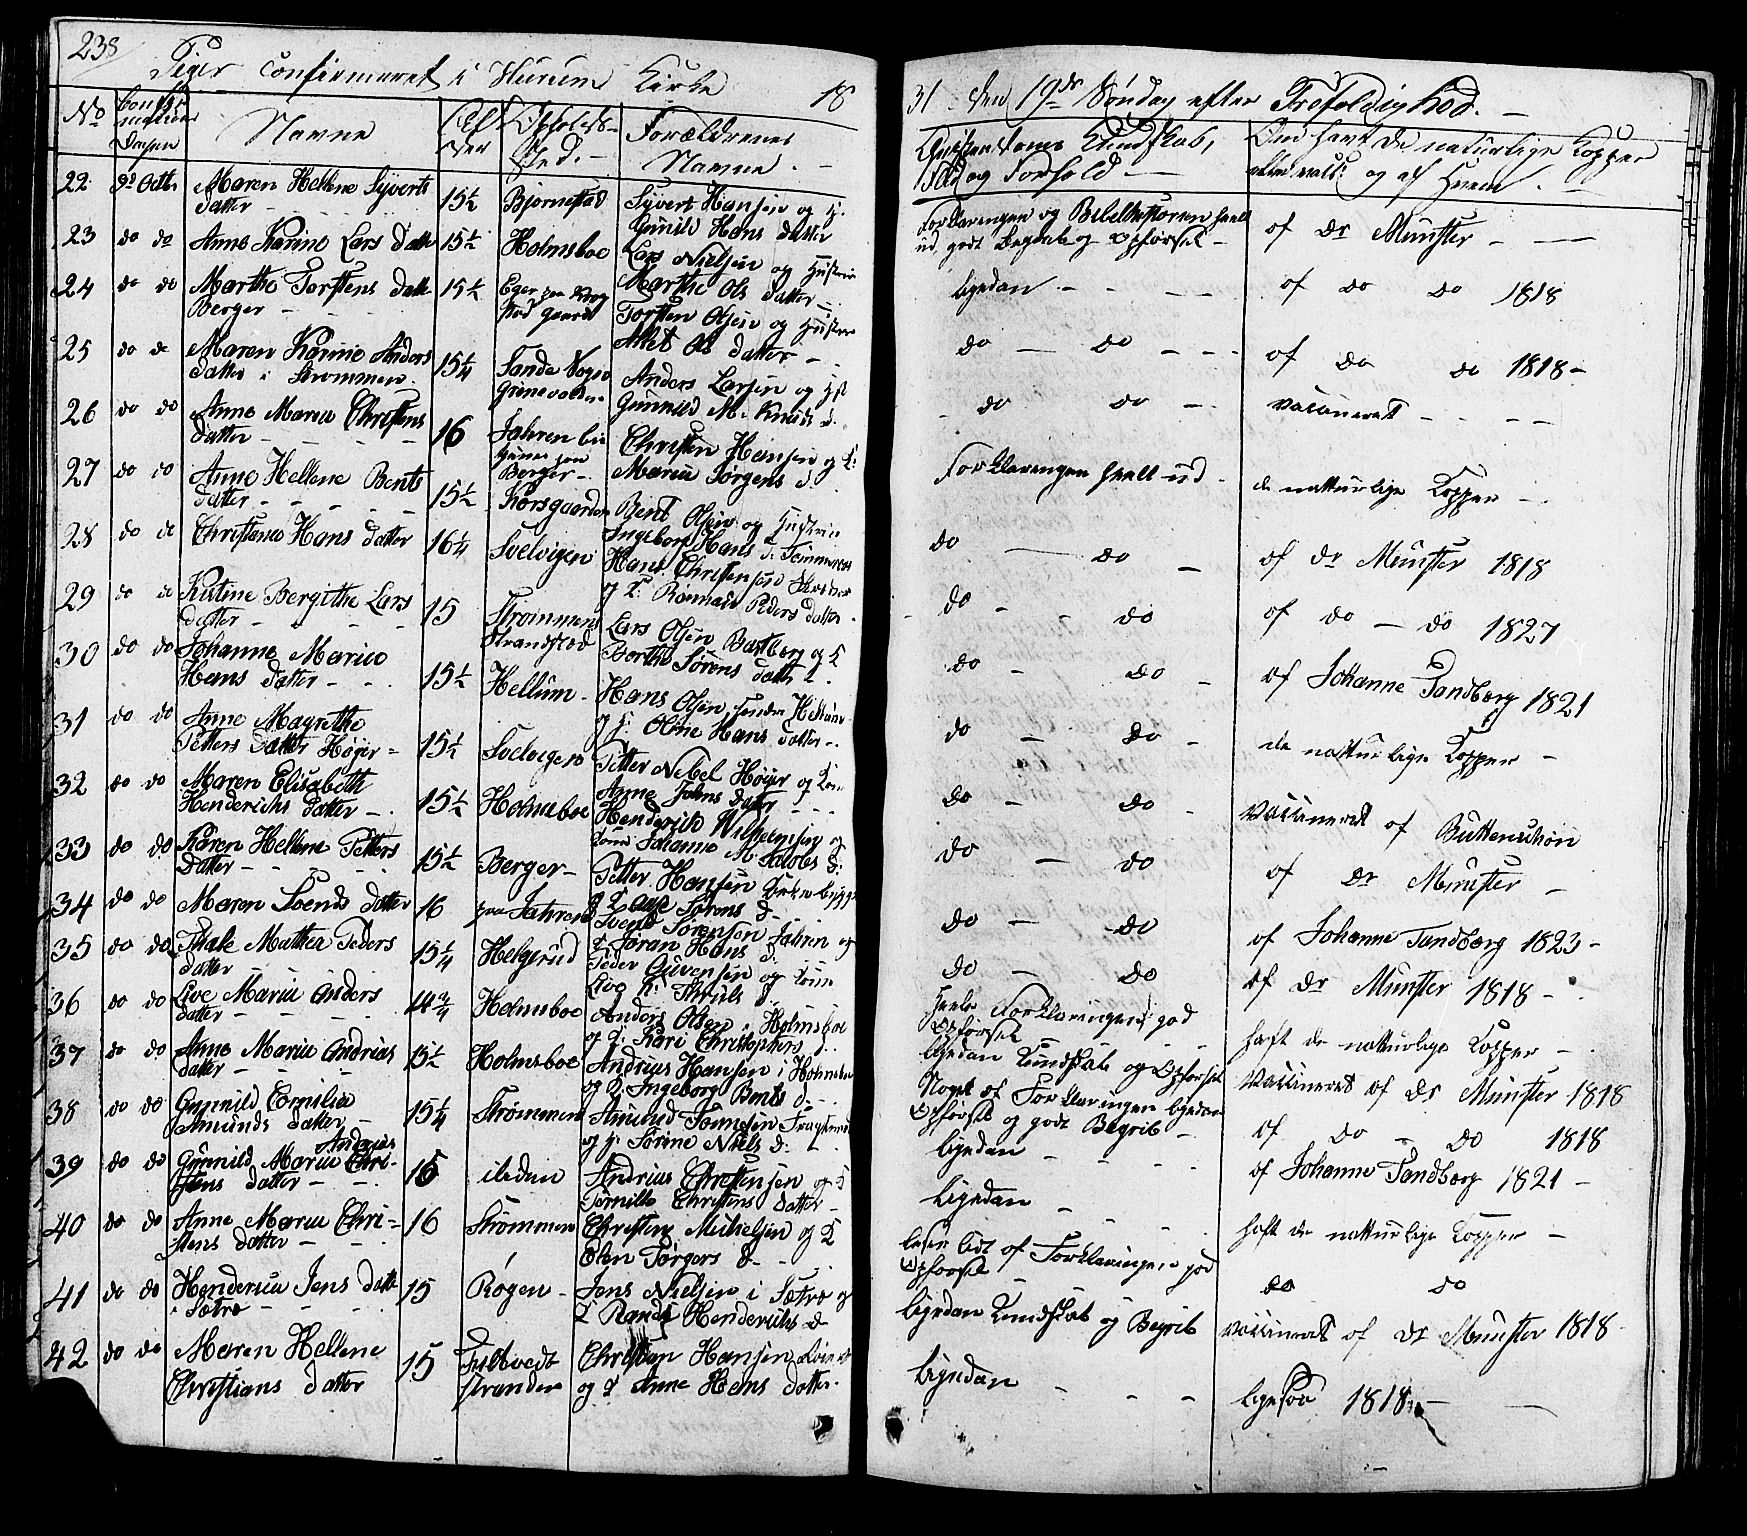 238
Piger confirmeret i Hurums Kirke 18
No Confirmations Dagen Navne Alder Opholds-Sted. Forældrenes Navne.
22 9de Octbr Maren Hellene Syverts 15½ Bjørnestad Syvert Hansen og H.
datter Gunild Hans datter
23 do do Anne Karine Lars datter 15½ Holmsboe Lars Nielsen og Hustrue
Marthe Ols datter
24 do do Marthe Torstens datter 15½ Eger paa
Berger gaard Torsten Olsen og Hustrue
Ols datter
25 do do Maren Karine Anders 15¼ Sande Sogn
datter i Strømmen Anders Larsen og H
Gunnild M. Knuds d.
26 do do Anne Maria Christens 16 Jahren
datter Christen Hansen og K:
Berger Maria Jørgens d.
27 do do Anne Hellene Bents 15½ Korsgaarden Bent Olsen og Hustrue
datter Ingeborg Hans d.
28 do do Christense Hans datter 16¼ Svelvigen Hans Christensen
og K: Peders datter
29 do do Kistine Bergithe Lars 15 Strømmens
datter Strandsted Lars Olsen Bastberg og K
Berthe Sørens datter
30 do do Johanne Marie
Hans datter 15½ Hellum Hans Olsen søndre Hellum
og H: Oline Hans datter
31 do do Anne Magrethe
Petters datter Høyer 15½ Svelvigen Petter Nebel Høyer og Kone
Anne Johns datter
32 do do Maren Elisabeth
Henderichs datter 15½ Holmsboe Henderich Wilhelmsen og
Kone Johanne M. Jacobs d:
33 do do Karen Hellene Petters 15½ Berger Petter Hansen
datter og K Sørens d
34 do do Maren Svends datter 16 paa Jahren Svend Sørensen Jahren og
K Søran Hans d:
35 do do Thale Mathea Peders 15¼ Helgerud Peder og Kone
datter Live H:
36 do do Live Maria Anders 14¾ Holmsboe Anders Olsen i Holmsboe
datter og K: Kari Christophers d:
37 do do Anne Maria Andrias 15½ Holmsboe Andrias Hansen i Holmsboe
datter og K. Ingeborg Bents d
38 do do Gunnild Emilia
Amunds datter 15¼ Strømmen Amund Tønnesen
og H: Sørine Niels d:
39 do do Gunnild Maria Andrias Chri- 16 ibidem Andrias Christensen og H
stens datter Pernille Christens datter
40 do do Anne Maria Chri- 16 Strømmen Christen Michelsen og K
stens datter Elen Torgers d.
41 do do Hendersia Jens datt 15 Røgen Jens Nielsen i Sætre og
i Sætre K Randi Henderichs d
42 do do Maren Hellene
Christians datter 15 Tultvedt
stranden Christian Hansen
og K Anne Hans datter
31 den 19de Søndag efter Trefoldighed.
Christendoms Kundskab,
Flid og Forhold
Om havt de naturlige Kopper
eller vacc: og af Hvem.
Forklaringen og Bibelhistorien heelt
ud, godt Begreb og Opførsel af Dr Münster
ligedan af do do 1818
do do af do do 1818
do do vaccineret
Forklaringen heelt ud de natturlige Kopper
do do af Dr Münster 1818
do do af do do 1827
do do af Johanne Sandberg 1821
do do de natturlige Kopper
do do vaccineret af Buttenschøn
do do af Dr Münster
do do af Johanne Sandberg 1823
do do af Dr Münster 1818
Heele Forklaringen, god
Opførsel haft de natturlige Kopper
ligedan Kundskab og Opførsel vaccineret af Dr Münster 1818
Noget af Forklaringen ligedan
Opførsel og godt Begreb af do do 1818
ligedan af Johanne Sandberg 1821
ligedan haft de natturlige Kopper
læser lidt af Forklaringen god
Opførsel do do
ligedan Kundskab og Begreb vaccineret af Dr Münster 1818
ligedan ligesaa 1818